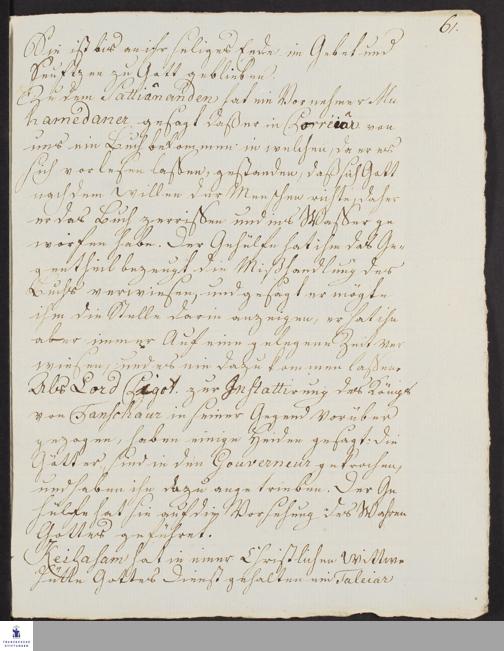 61.
Sie ist bis an ihr seliges Ende im Gebet und
Seufzen zu Gott geblieben.
Zu dem Sattiânanden hat ein Vornehmer Mu
hamedaner gesagt daß er in Corréiâr von
uns ein Buch bekommen in welchen, da er es
sich vorlesen lassen, gestanden, daß sich Gott
nach dem Willen der Menschen richte, daher
er das Buch zerrissen und ins Wasser ge
worfen habe. Der Gehülfe hat ihm das Ge-
gentheil bezeugt die Mißhandlung des
Buchs verwiesen, und gesagt er mögte
ihm die Stelle darin anzeigen, er hat ihn
aber immer Auf eine gelegene Zeit ver
wiesen, und es nie dazu kommen lassen.
Als Lord Pigot. zur Installirung des Königs
von Tanschaur in seiner Gegend vorüber
gezogen, haben einige Heiden gesagt: die
Götter sind in den Gouverneur gekrochen,
und haben ihn dazu angetrieben. Der Ge
hülfe hat sie auf die Vorsehung des Wahren
Gottes geführet.
hat in einer Christlichen Wittwe
Hütte Gottes Dienst gehalten ein Taleiar
FRANCKESCHE
STIFTUNGEN